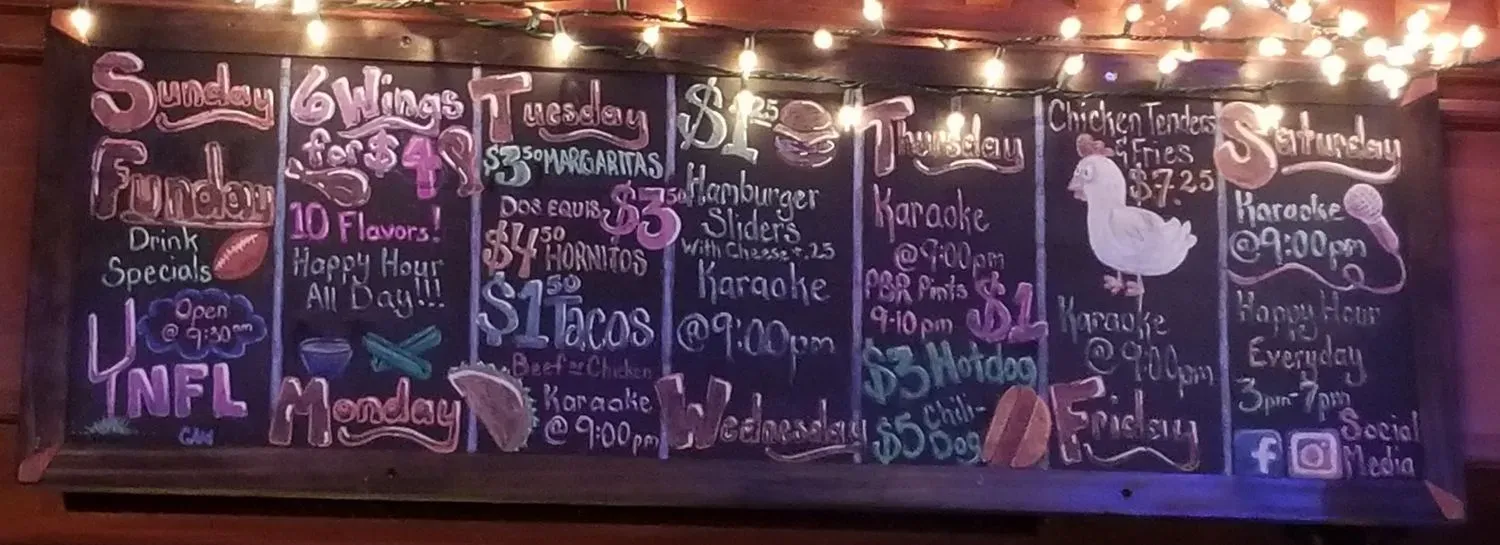 Sunday
Funday
Drink
Specials
Open
@ 9:30am
NFL
6 Wings
for $4
10 Flavors!
Happy Hour
All Day!!!
Monday
Tuesday
$3.50 MARGARITAS
DOS EQUIS $3.50
$4.50 HORNITOS
$1.50 Tacos
Beef or Chicken
Karaoke
@ 9:00pm
$1.25
Hamburger
Sliders
With Cheese +.25
Karaoke
@9:00pm
Wednesday
Thursday
Karaoke
@9:00pm
PBR Pints $1
9-10pm
$3 Hotdog
$5 Chili-
Dog
Chicken Tenders
& Fries
$7.25
Karaoke
@ 9:00pm
Friday
Saturday
Karaoke
@9:00pm
Happy Hour
Everyday
3pm-7pm
f Social
Media